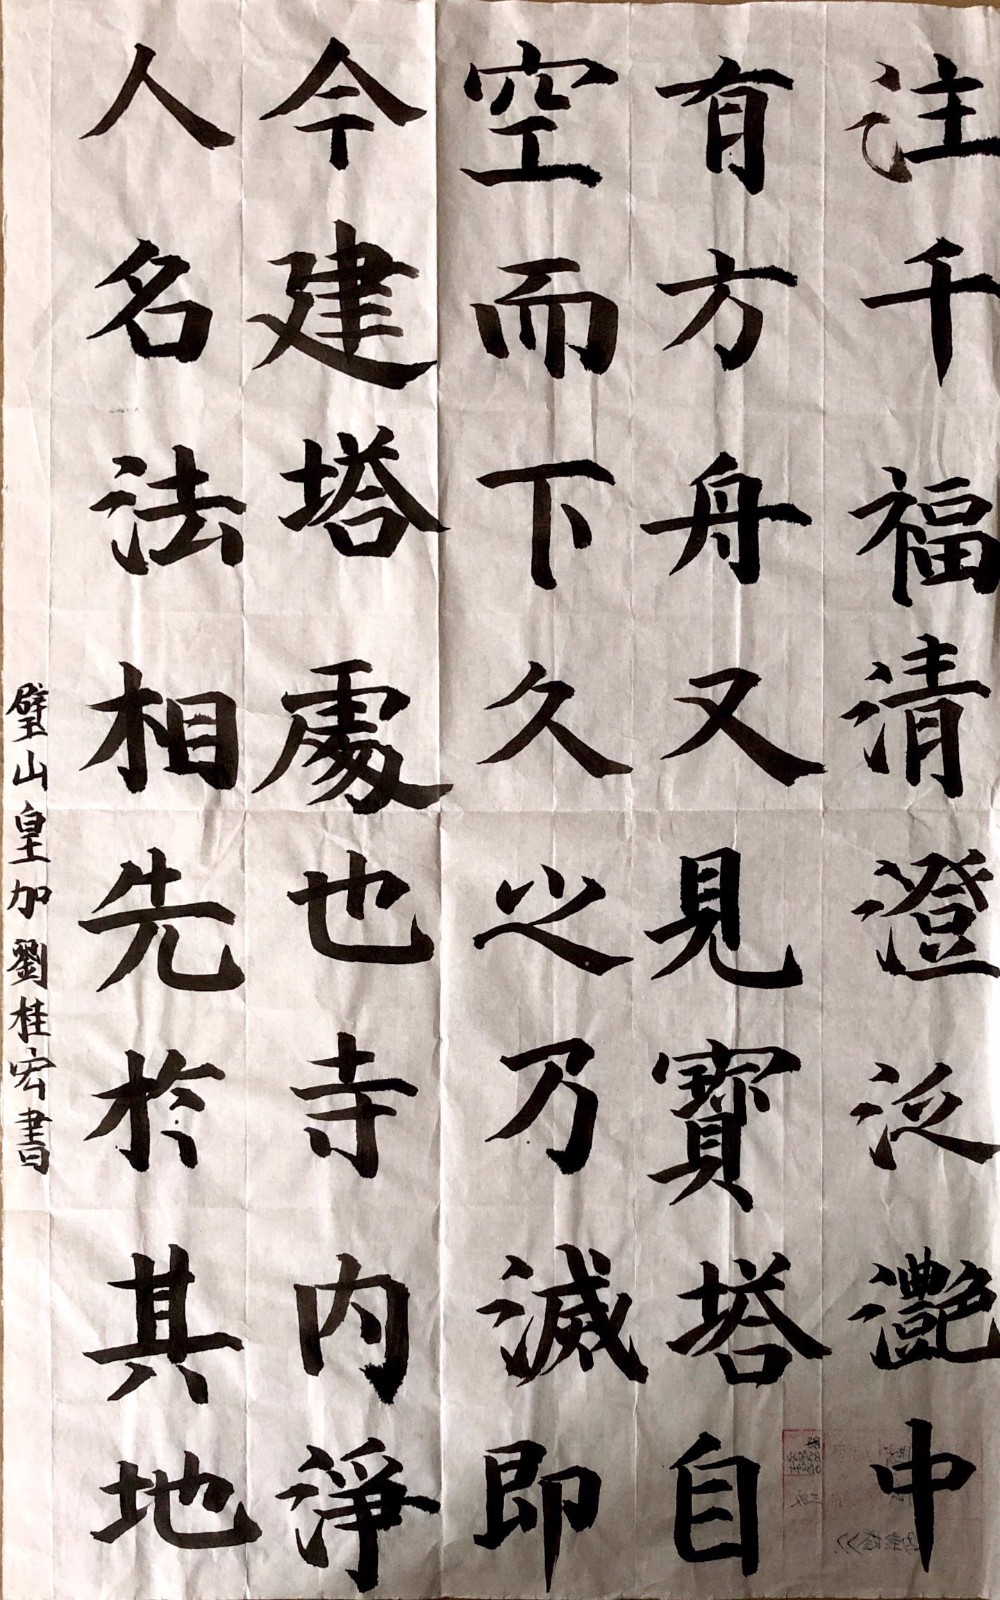 注千福清澄泛灔中
有方舟又見寶塔自
空而下久之乃滅即
今建塔處也寺内淨
人名法相先於其地
璧山皇加劉桂宏書